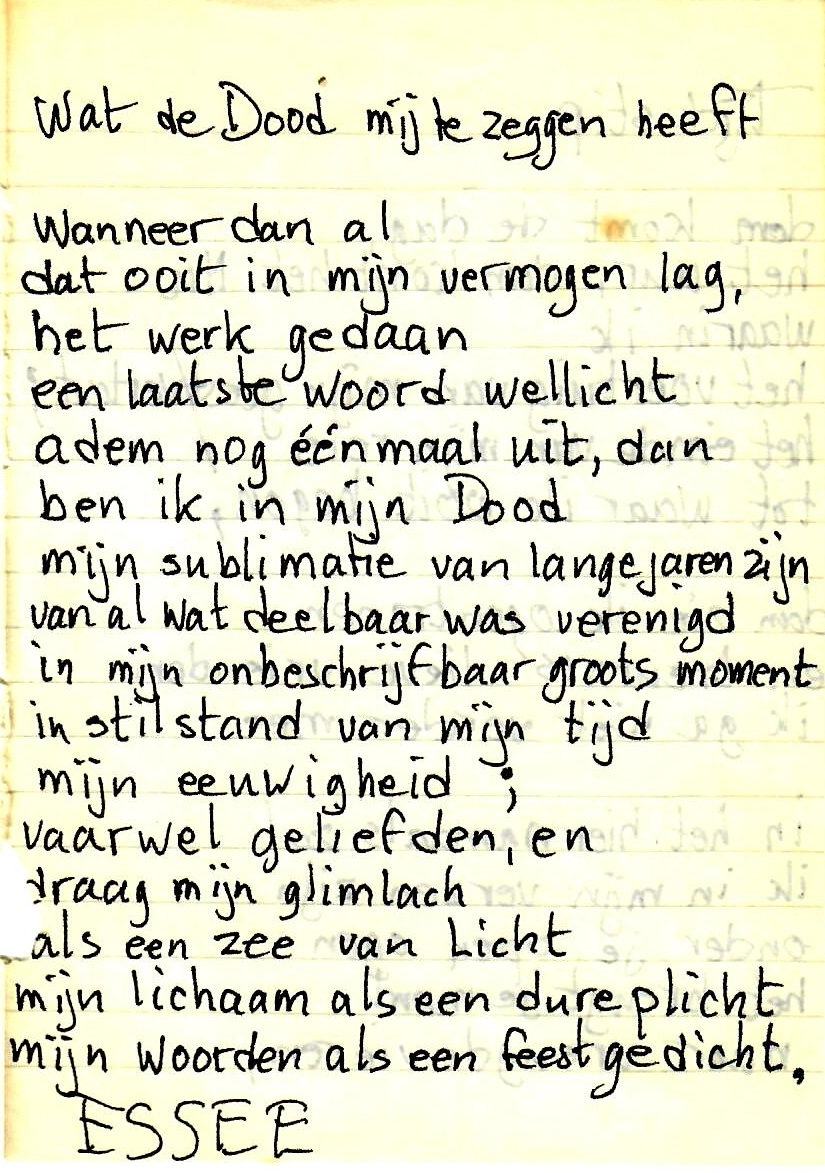 Wat de Dood mij te zeggen heeft
Wanneer dan al
dat ooit in mijn vermogen lag,
het werk gedaan
een laatste woord wellicht
adem nog éénmaal uit, dan
ben ik in mijn Dood
mijn sublimatie van lange jaren zijn
van al wat deelbaar was verenigd
in mijn onbeschrijfbaar groots moment
in stilstand van mijn tijd
mijn eeuwigheid ;
vaarwel geliefden, en
draag mijn glimlach
als een zee van Licht
mijn lichaam als een dure plicht
mijn woorden als een feestgedicht.
ESSEE